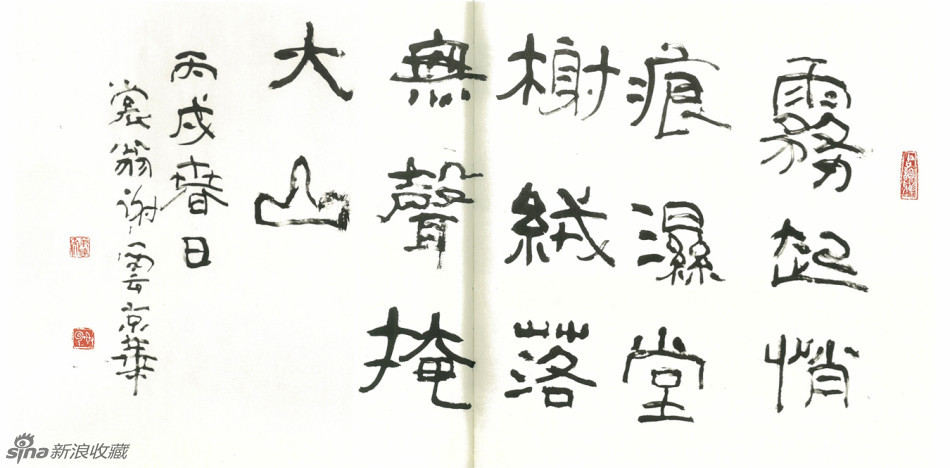 霧起悄
痕濕堂
榭絨落
無聲掩
大山
丙戌春日
裳翁谢雲京華
sina新浪收藏